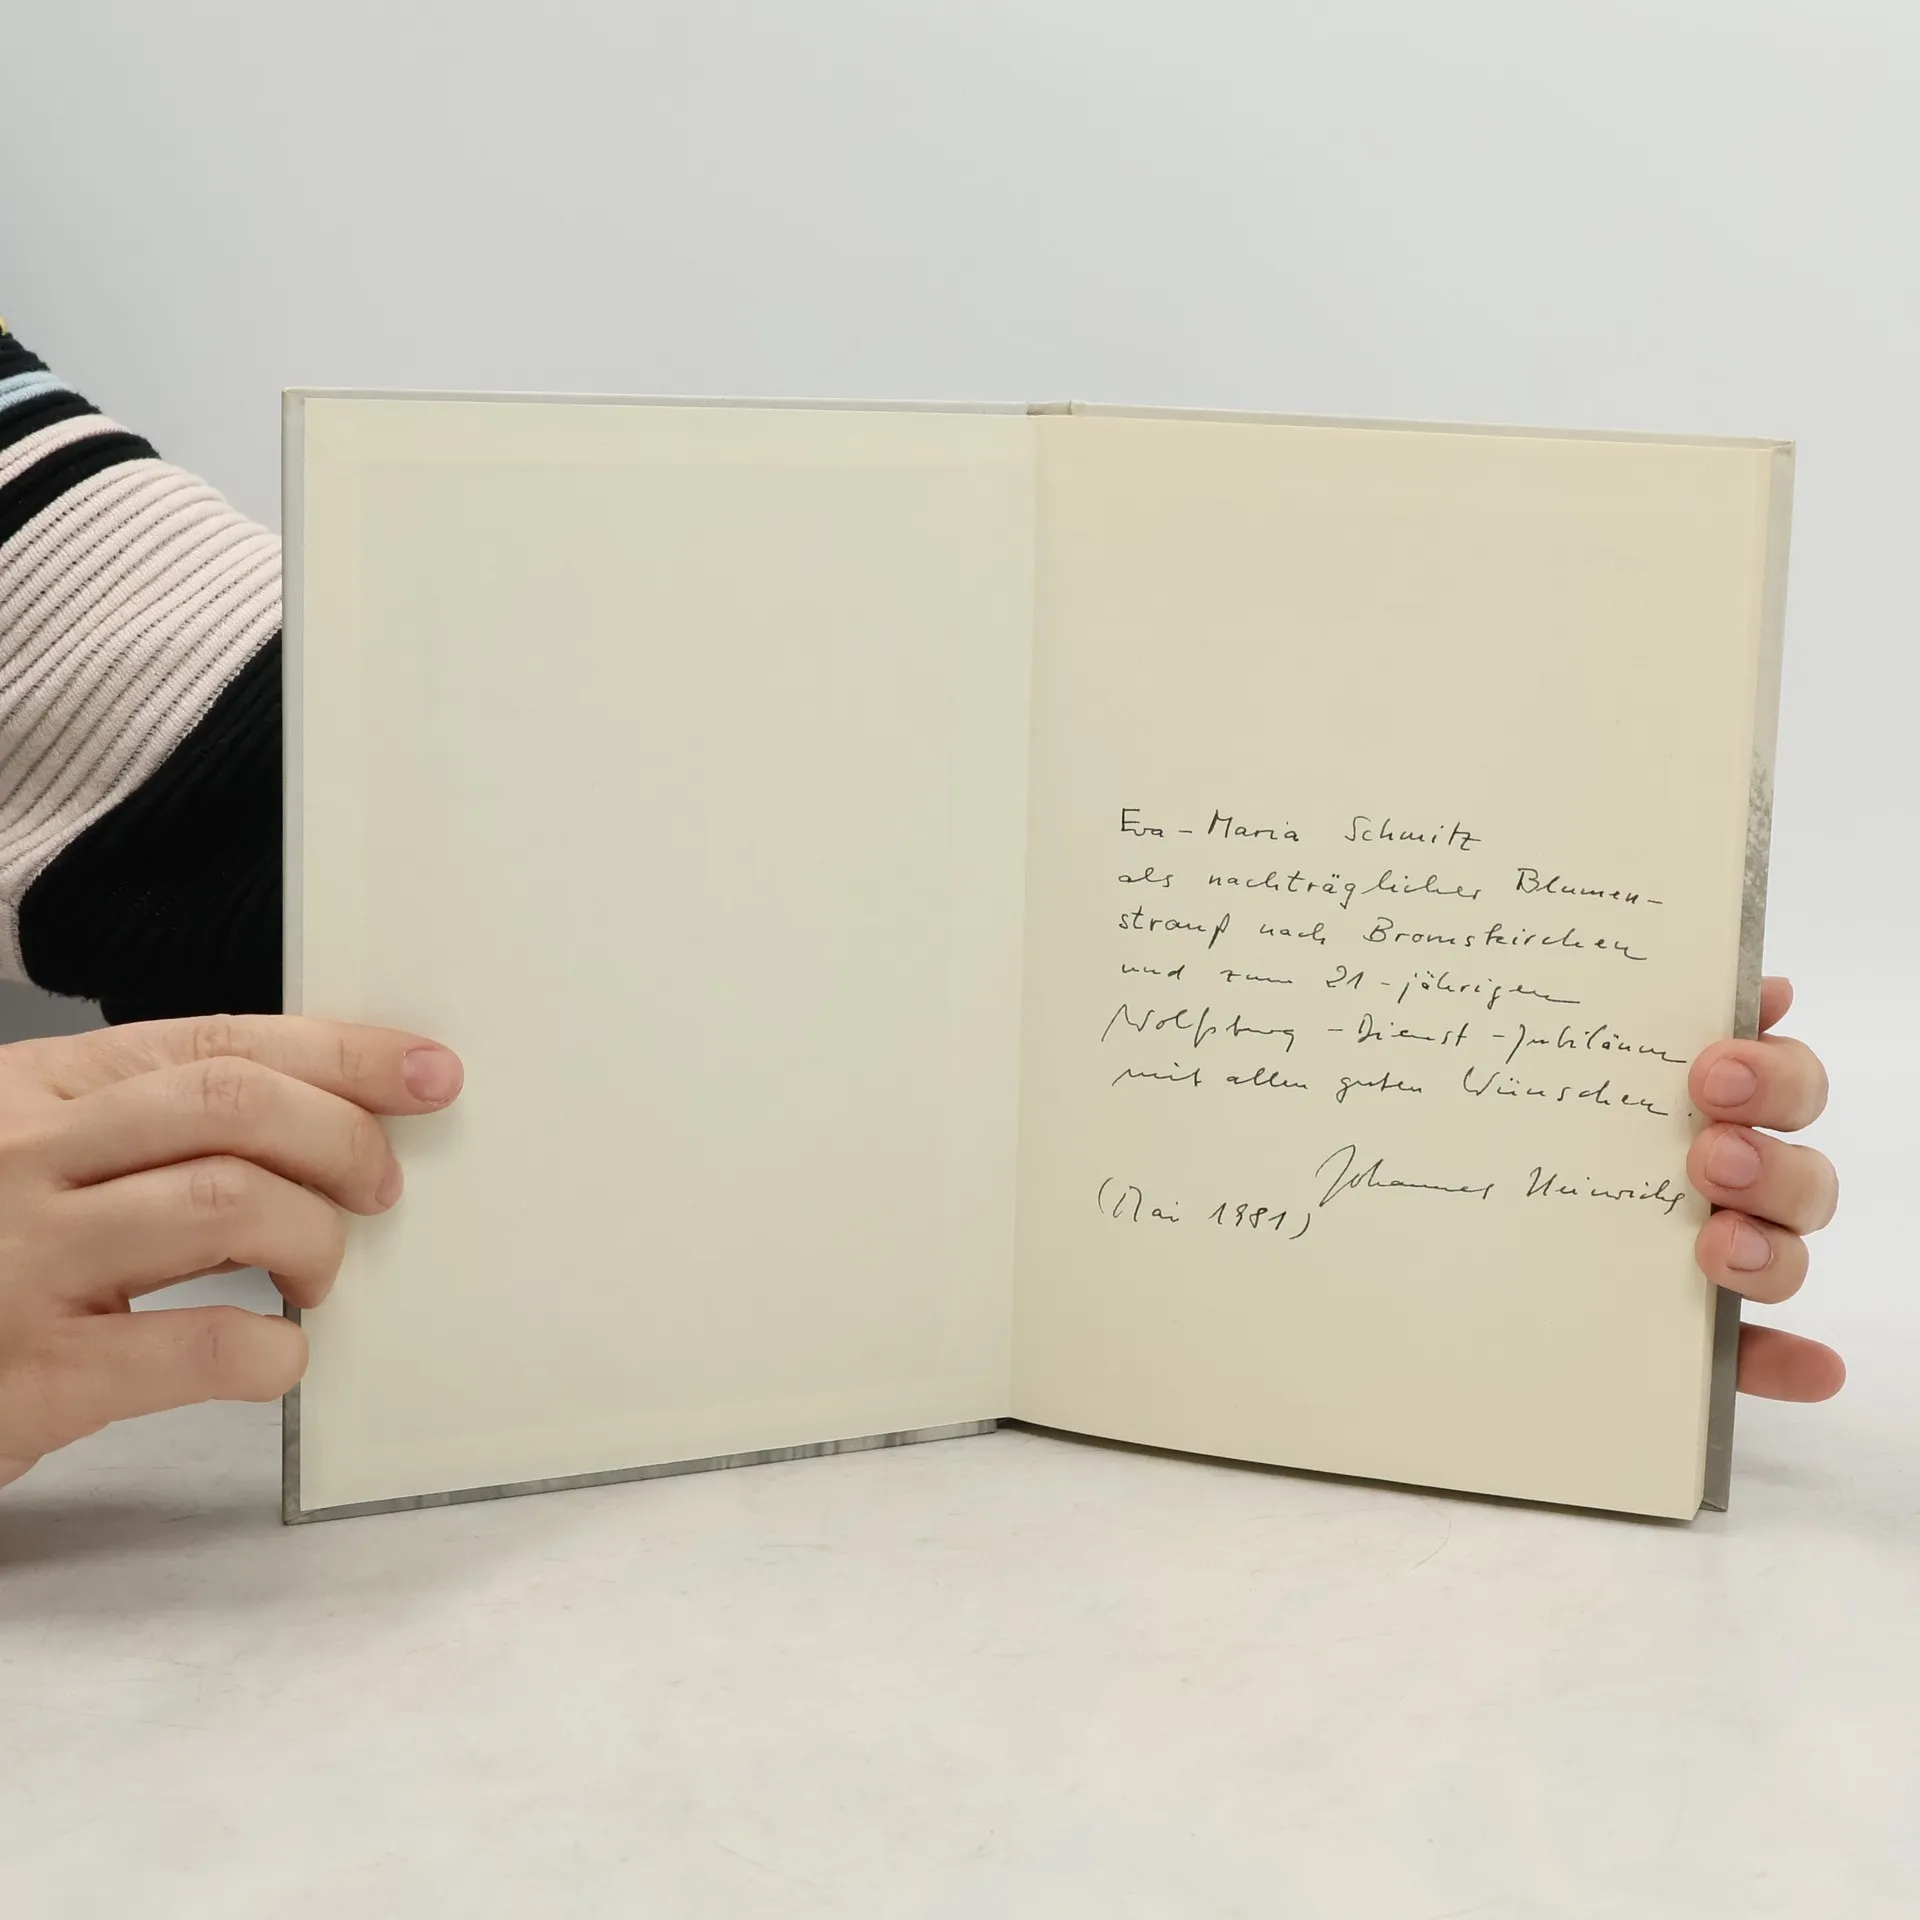 Eva-Maria Schmitz
als nachträglicher Blumen-
strauß nach Bromskirchen
und zum 21-jährigen
Wolfsburg-Dienst-Jubiläum
mit allen guten Wünschen.
Johannes Heinrichs
(Mai 1981)